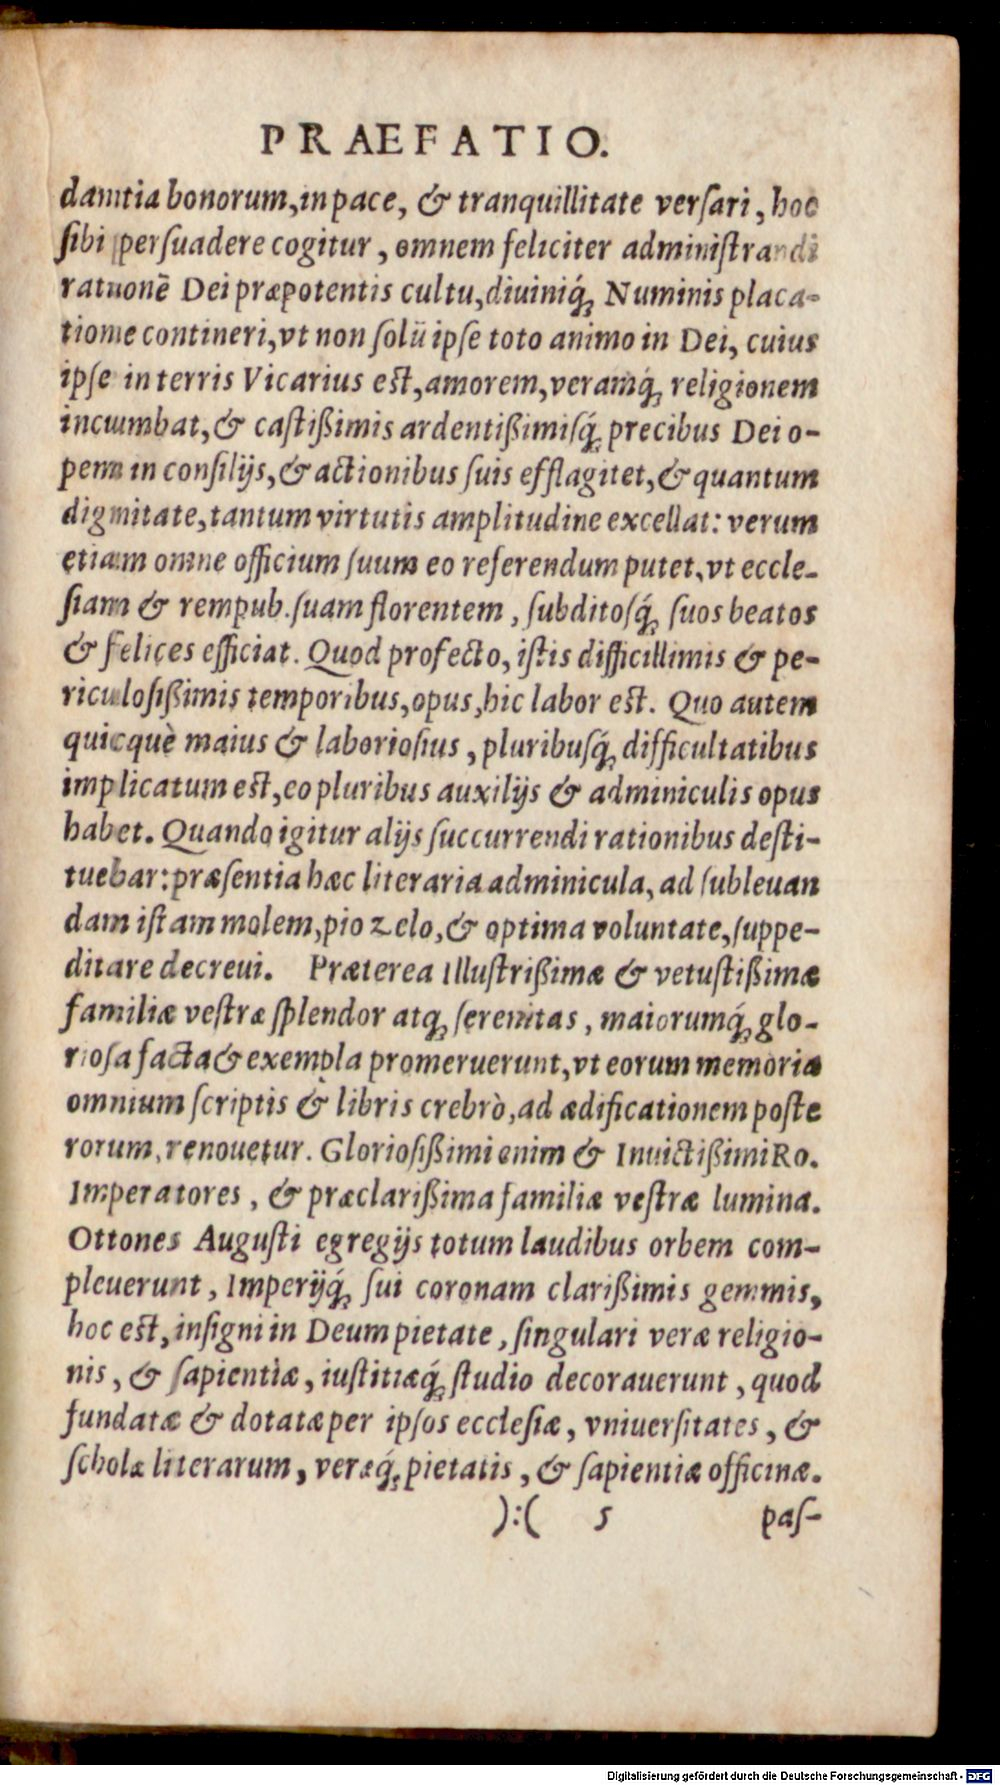 PRAEFATIO.
dantia bonorum, in pace, & tranquillitate versari, hoc
sibi persuadere cogitur, omnem feliciter administrandi
rationē Dei præpotentis cultu, diuiniq́; Numinis placa-
tione contineri, vt non solū ipse toto animo in Dei, cuius
ipse in terris Vicarius est, amorem, veramq́; religionem
incumbat, & castißimis ardentißimisq́; precibus Dei o-
pem in consilijs, & actionibus suis efflagitet, & quantum
dignitate, tantum virtutis amplitudine excellat: verum
etiam omne officium suum eo referendum putet, vt eccle-
siam & rempub. suam florentem, subditosq́; suos beatos
& felices efficiat. Quod profecto, istis difficillimis & pe-
riculosißimis temporibus, opus, hic labor est. Quo autem
quicquè maius & laboriosius, pluribusq́; difficultatibus
implicatum est, eo pluribus auxilijs & adminiculis opus
habet. Quando igitur alijs succurrendi rationibus desti-
tuebar: præsentia hæc literaria adminicula, ad subleuan
dam istam molem, pio zelo, & optima voluntate, suppe-
ditare decreui. Præterea Illustrißimæ & vetustißimæ
familiæ vestræ splendor atq; serenitas, maiorumq́; glo-
riosa facta & exempla promeruerunt, vt eorum memoria
omnium scriptis & libris crebrò, ad ædificationem poste
rorum, renouetur. Gloriosißimi enim & Inuictißimi Ro.
Imperatores, & præclarißima familiæ vestræ lumina.
Ottones Augusti egregijs totum laudibus orbem com-
pleuerunt, Imperijq́; sui coronam clarißimis gemmis,
hoc est, insigni in Deum pietate, singulari veræ religio-
nis, & sapientiæ, iustitiæq́; studio decorauerunt, quod
fundatæ & dotatæ per ipsos ecclesiæ, vniuersitates, &
scholæ literarum, veræq́; pietatis, & sapientiæ officinæ.
):( 5 pas-
Digitalisierung gefördert durch die Deutsche Forschungsgemeinschaft - DFG